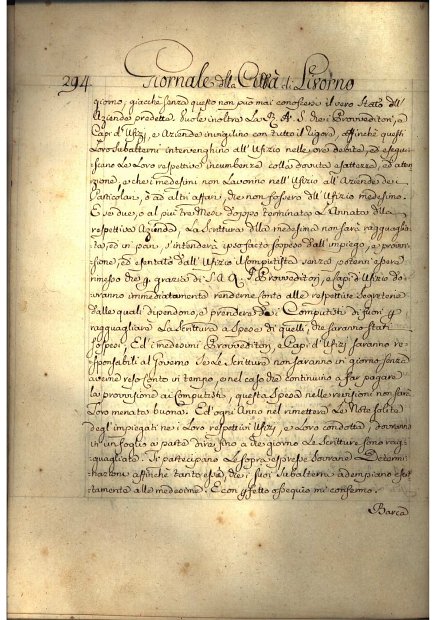 294. Giornale della Città di Livorno
giorno, giacchè senza questo non può mai conoscersi il vero Stato dell'
Azienda predetta. Vuole inoltre La R. A. S. che i Provveditori, e
Capi d'Ufizj, e Aziende invigilino con tutto il rigore, affinchè questi
Loro Subalterni intervenghino all'Ufizio nelle ore debite, ed esegui-
scano Le Loro respettive incumbenze colla dovuta esattezza, ed atten-
zione, e che i medesimi non Lavorino nell'Ufizio all'Aziende dei
Particolari, ò ad altri affari, che non fossero dell'Ufizio medesimo.
E se due, o al più tre Mesi doppo terminata L'Annata della
respettiva Azienda, La Scrittura della medesima non sarà ragguaglia-
ta, ed in pari, s'intenderà ipso facto sospeso dall'impiego, e provvi-
sione, ed esentato dall'Ufizio il Computista senza potervi essere
rimesso che p. grazia di S. A. R. I Provveditori, e Capi d'Ufizio do-
vranno immediatamente renderne Conto alle respettive Segreterie
dalle quali dipendono, e prendere dei Computisti di fuori p.
ragguagliare La Scrittura a Spese di quelli, che saranno stati
sospesi. Ed i medesimi Provveditori, e Capi d'Ufizj saranno re-
sponsabili al Governo se Le Scritture non saranno in giorno senza
averne reso Conto in tempo, e nel caso che continuino a far pagare
la provvisione ai Computisti, questa Spesa nelle revisioni non sarà
Loro menata buona. Ed ogni Anno nel rimettere Le Note solite
degl'impiegati nei Loro respettivi Ufizj, e Loro condotta, dovranno
in un foglio a parte dire fino a che giorno Le Scritture sono rag-
guagliate. Ti partecipano Le sopra espresse Sovrane Determi-
nazioni affinchè tanto essa, che i suoi Subalterni adempiano esat-
tamente alle medesime. E con perfetto ossequio mi confermo.
Barca